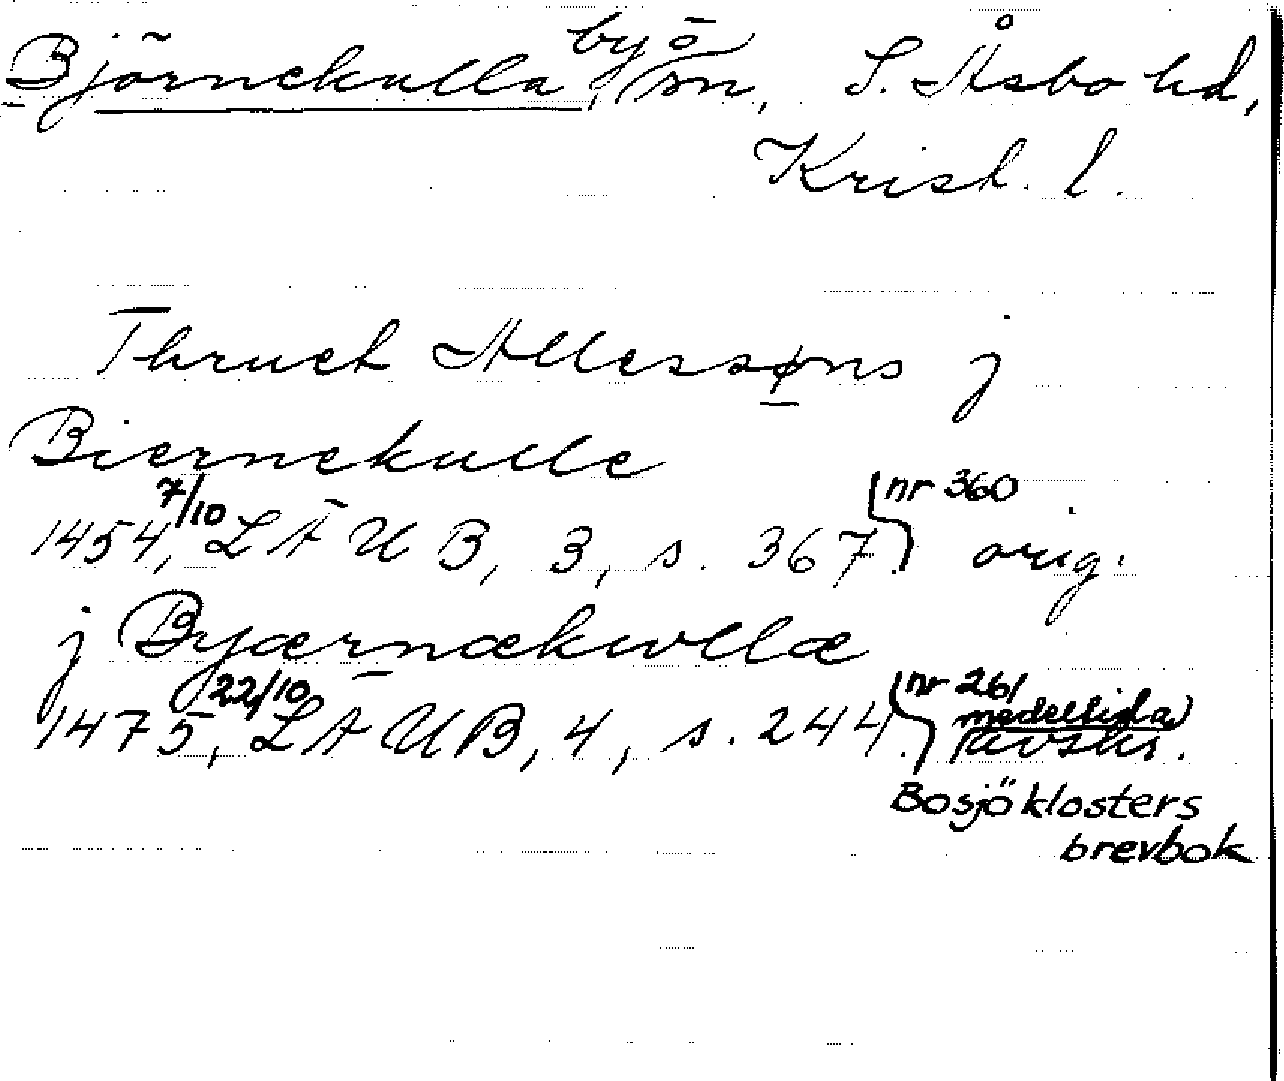 Björnekulla, by ö sn, S. Åsbo hd,
Krist. l.
Thruet Allessøns j
Biernekulle
1454, 7/10 LÄUB, 3, s. 367. nr 360 orig.
j Byærnækwllæ
1475, 22/10 LÄUB, 4, s. 244. nr 261 medeltida avskr.
Bosjöklosters
brevbok